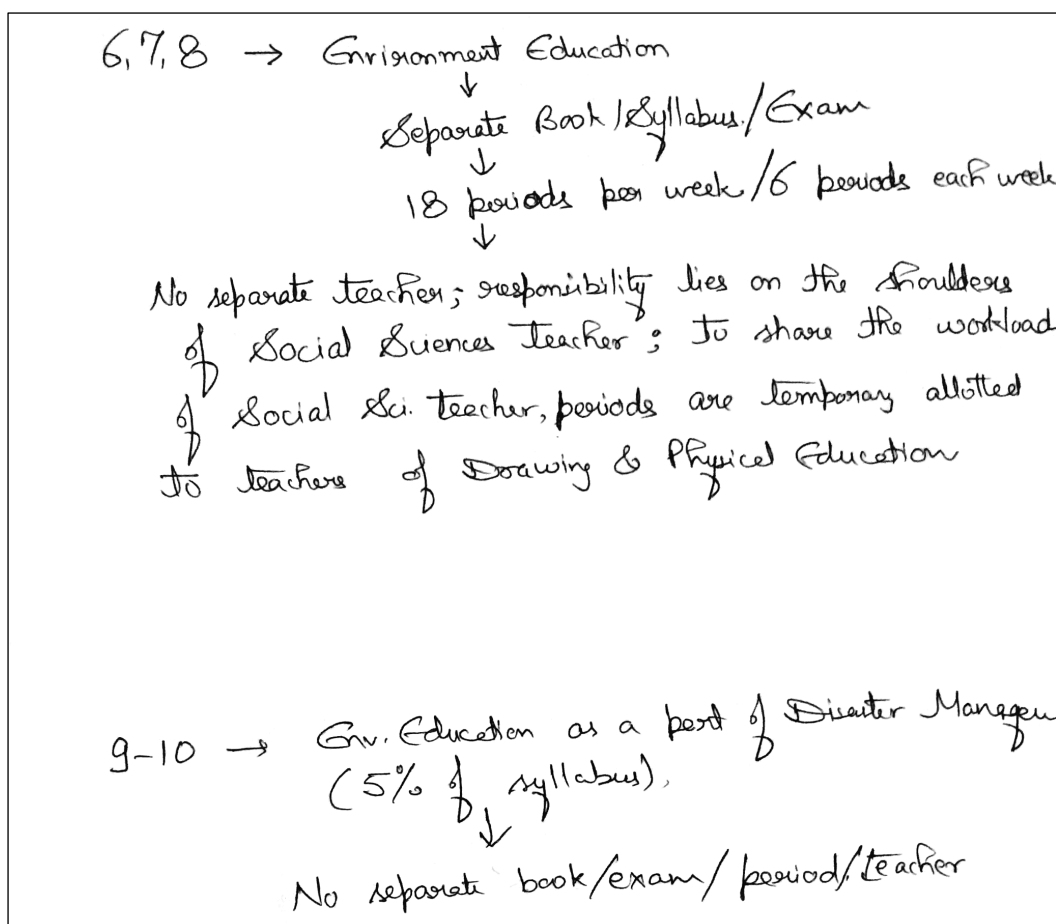 6,7,8 → Environment Education
↓
Separate Book/Syllabus/Exam
↓
18 periods per week/6 periods each week
↓
No separate teacher; responsibility lies on the shoulders
of Social Sciences Teacher; to share the workload
of Social Sci. teacher, periods are temporary allotted
to teachers of Drawing & Physical Education
9-10 → Env. Education as a part of Disaster Managem
(5% of syllabus).
↓
No separate book/exam/period/teacher